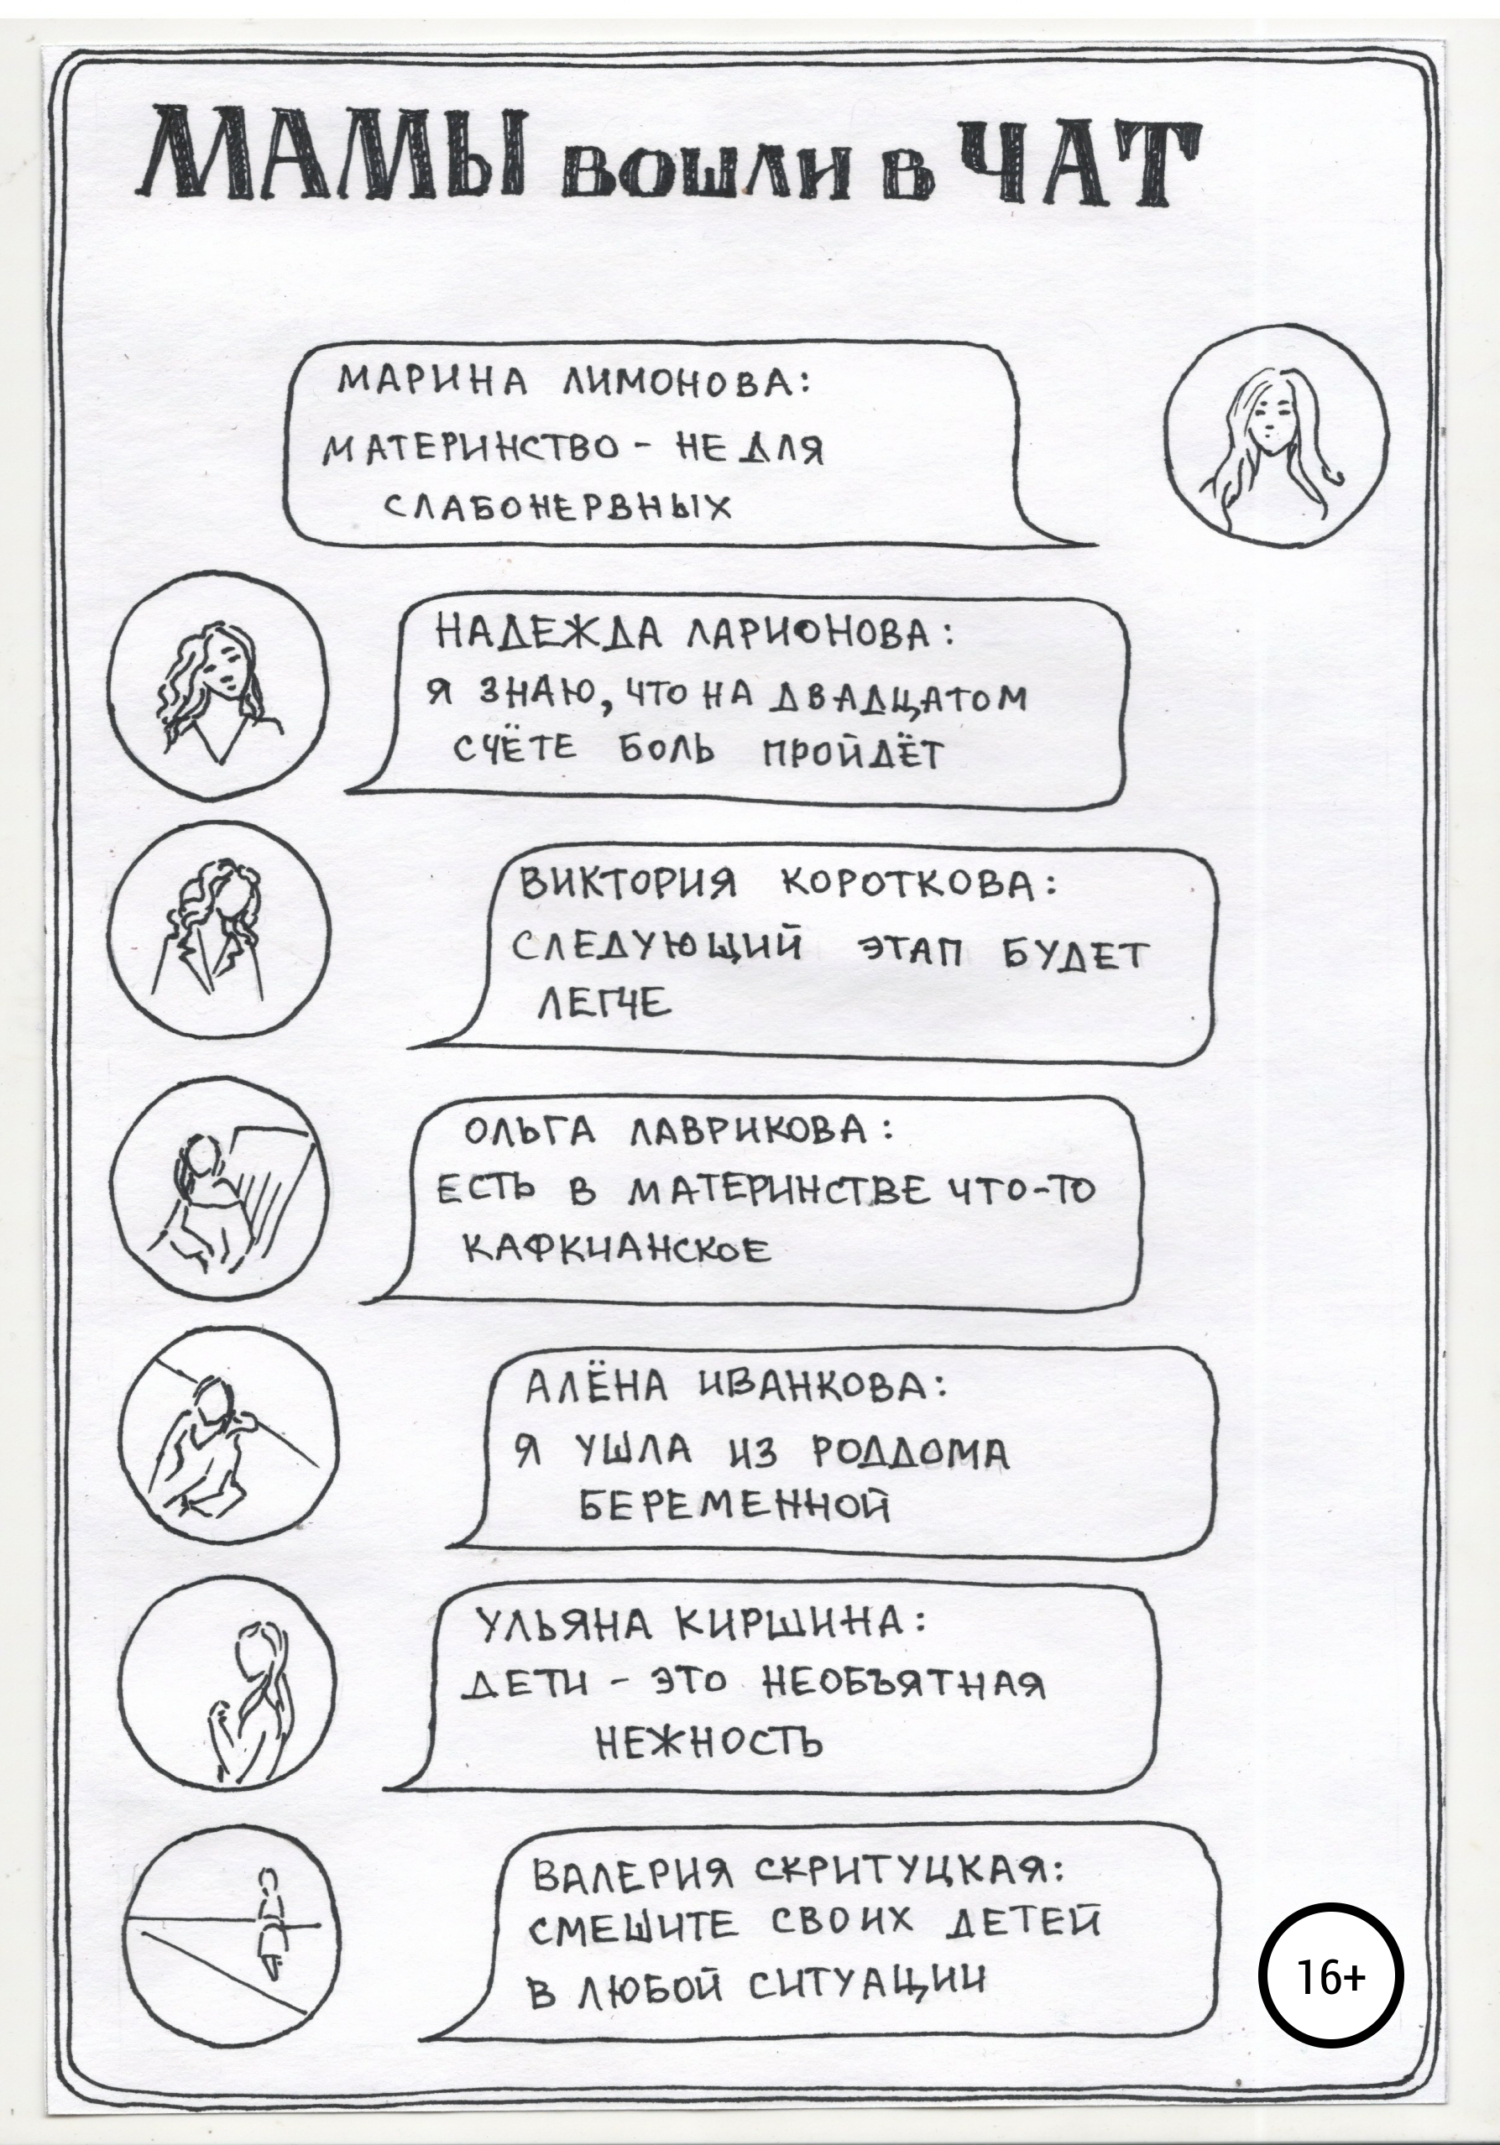 МАМЫ вошли в ЧАТ
МАРИНА ЛИМОНОВА:
МАТЕРИНСТВО - НЕ ДЛЯ
СЛАБОНЕРВНЫХ
НАДЕЖДА ЛАРИОНОВА:
Я ЗНАЮ, ЧТО НА ДВАДЦАТОМ
СЧЁТЕ БОЛЬ ПРОЙДЁТ
ВИКТОРИЯ КОРОТКОВА:
СЛЕДУЮЩИЙ ЭТАП БУДЕТ
ЛЕГЧЕ
ОЛЬГА ЛАВРИКОВА:
ЕСТЬ В МАТЕРИНСТВЕ ЧТО-ТО
КАФКИАНСКОЕ
АЛЁНА ИВАНКОВА:
Я УШЛА ИЗ РОДДОМА
БЕРЕМЕННОЙ
УЛЬЯНА КИРШИНА:
ДЕТИ - ЭТО НЕОБЪЯТНАЯ
НЕЖНОСТЬ
ВАЛЕРИЯ СКРИТУЦКАЯ:
СМЕШИТЕ СВОИХ ДЕТЕЙ
В ЛЮБОЙ СИТУАЦИИ
16+